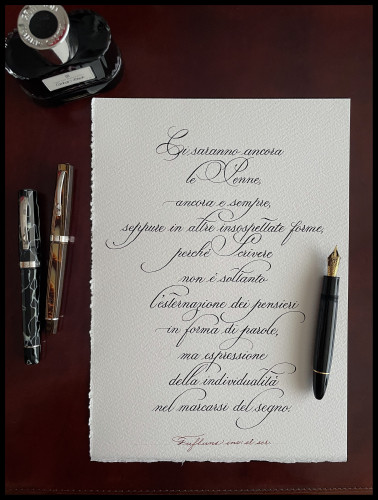 Ci saranno ancora
le Penne,
ancora e sempre,
seppure in altre insospettate forme;
perché Scrivere
non è soltanto
l'esternazione dei pensieri
in forma di parole,
ma espressione
della individualità
nel marcarsi del segno.